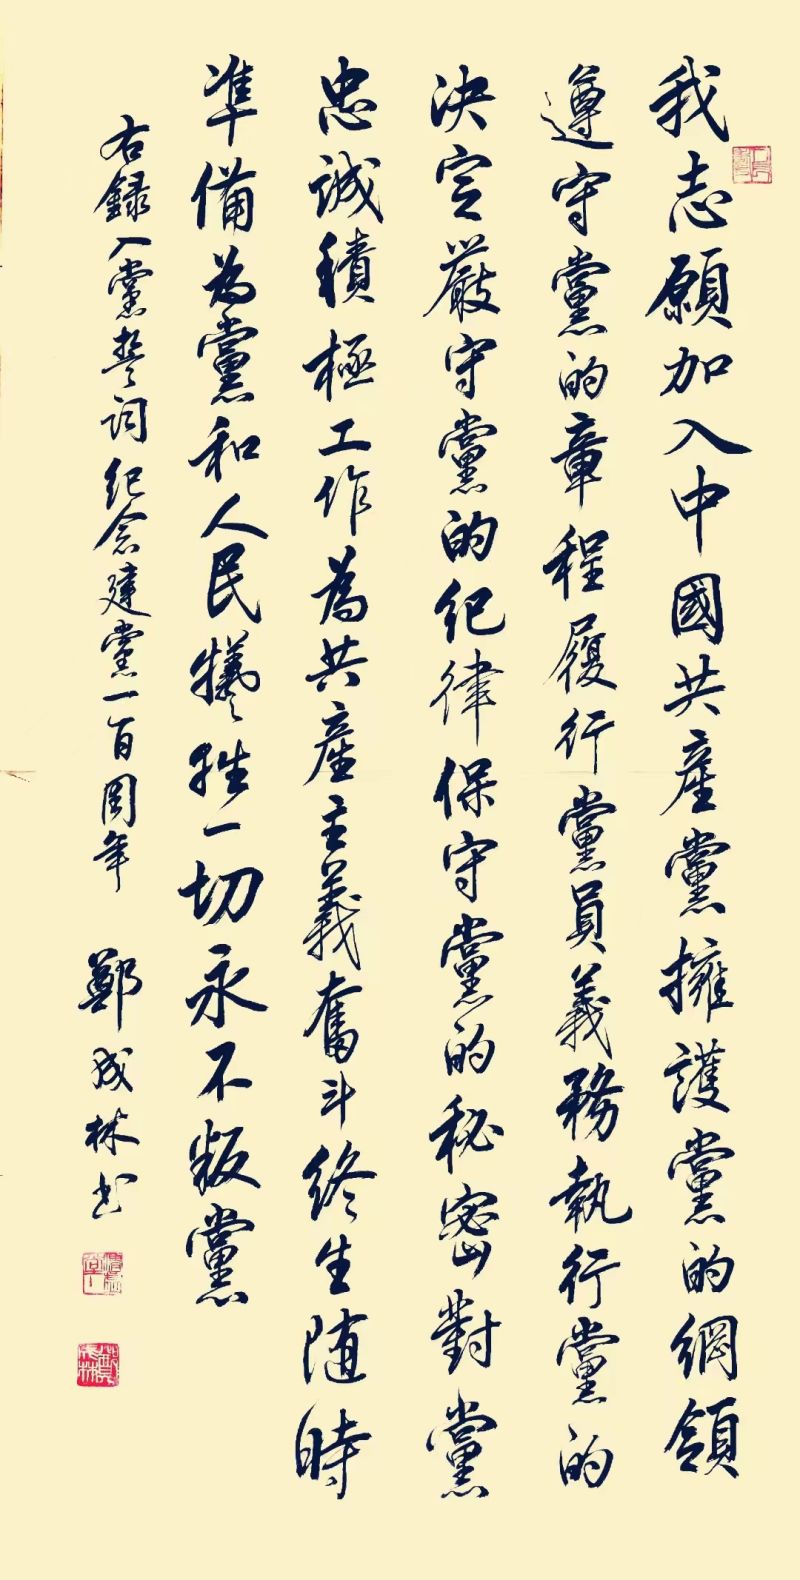 我志願加入中國共產黨擁護黨的綱領
遵守黨的章程履行黨員義務執行黨的
決定嚴守黨的紀律保守黨的秘密對黨
忠誠積極工作為共產主義奮斗終生随時
凖備為黨和人民犧牲一切永不叛黨
右錄入黨誓詞紀念建黨一百周年 鄭成林书